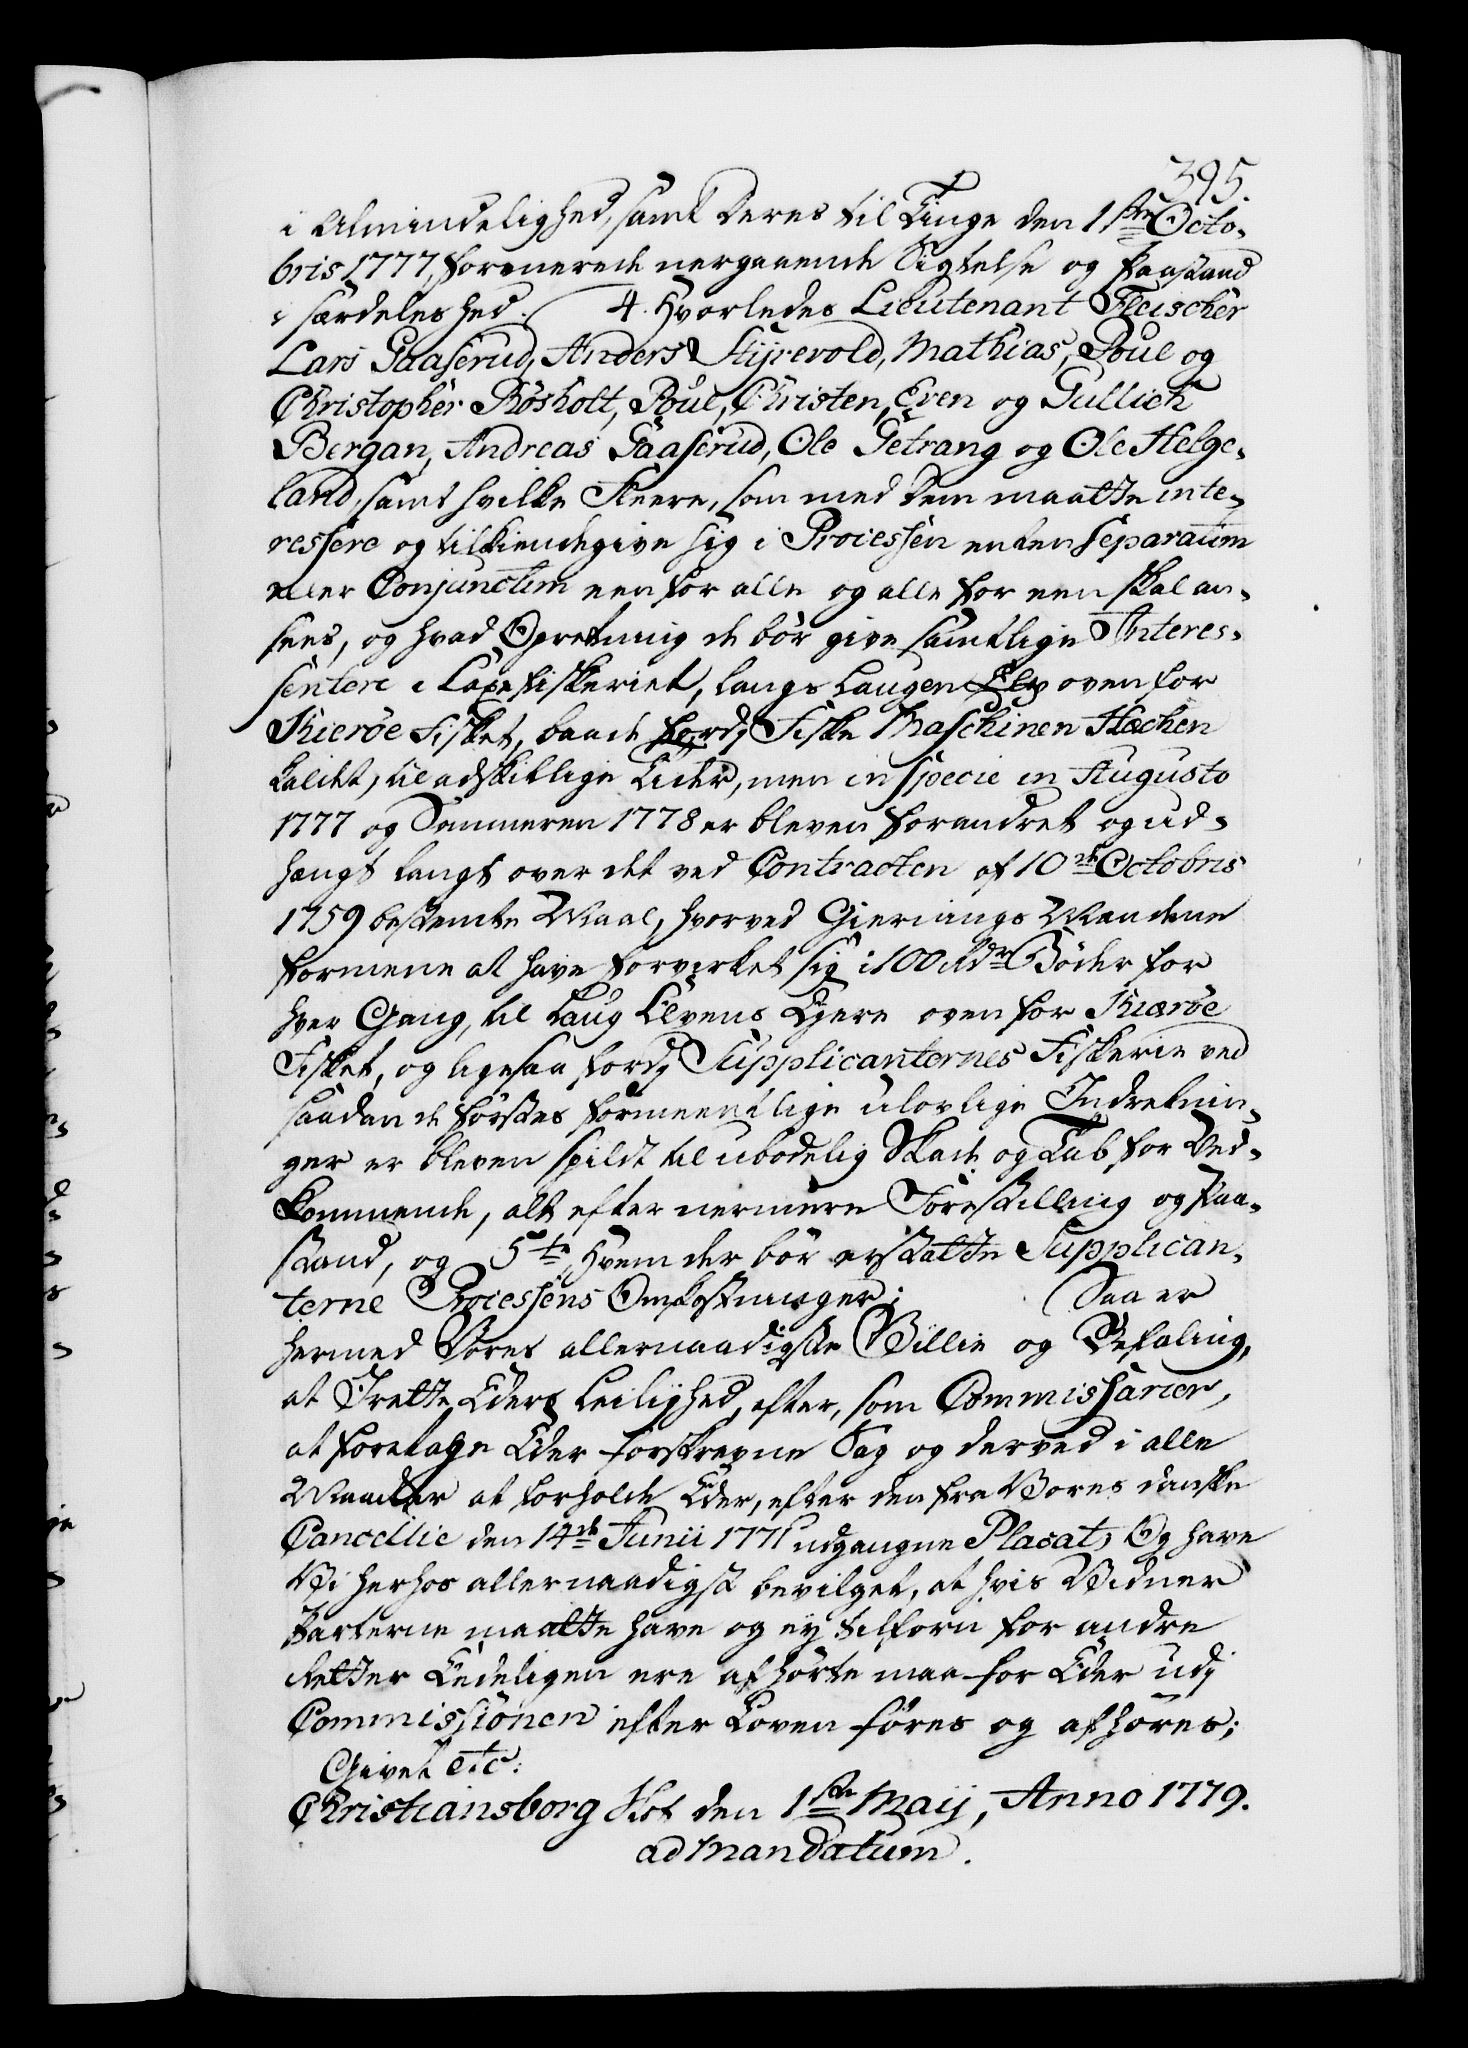 395.
i Almindelighed, samt deres til Tinge den 1ste Octo-
bris 1777, fornærede nærgaaende Sigtelse og Paastand
i særdeleshed. 4. Hvorledes Lieutenant Fleischer
Lars Gaaserud, Anders Styrevold, Mathias, Poul og
Christopher Røsholt, Poul, Christen, Even og Gullich
Bergan, Andreas Gaaserud, Ole Getrang og Ole Helge-
land, samt hvilke Fleere, som med dem maatte inte-
ressere og tilkiendegive sig i Processen enten separatim
eller Conjunctim een for alle og alle for een skal an-
sees, og hvad Opretning de bør give samtlige Interes-
sentere i Laxefiskeriet, langs Laugen Elv oven for
Kierøe Fisket, baade fordj Fiske Maschinen Hæchen
kaldet, til adskillige Tider, men in specie in Augusto
1777 og Sommeren 1778 er bleven forandret og ud-
hængt langt over det ved Contracten af 10de Octobris
1759 bestemte Maal, hvorved Giernings Mændene
formene at have forvirket sig i 100 Rdr Bøder for
hver Gang, til Laug Elvens Eyere oven for Kiærøe
Fisket, og ligesaa fordj Supplicanternes Fiskerie ved
saadan de førstes formeentlige ulovlige Indretnin-
ger er bleven spildt til ubodelig Skade og Tab for Ved-
kommende, alt efter nermere Forestilling og Paa-
stand, og 5te Hvem der bør erstatte Supplican-
terne Processens Omkostninger; Saa er
hermed Vores allernaadigste Villie og Befaling,
at I rette Eders Leilighed, efter, som Commissarier,
at foretage Eder forskrevne Sag og derved i alle
Maader at forholde Eder, efter den fra Vores danske
Cancellie den 14de Junii 1771 udgangne Placat, Og have
Vi herhos allernaadigst bevilget, at hvis Vidner
Parterne maatte have og ey tilforn for andre
Retter Eedeligen ere afhørte maa for Eder udj
Commissionen efter Loven føres og afhøres;
Givet etc:
Christiansborg Slot den 1ste Maij, Anno 1779.
ad mandatum.